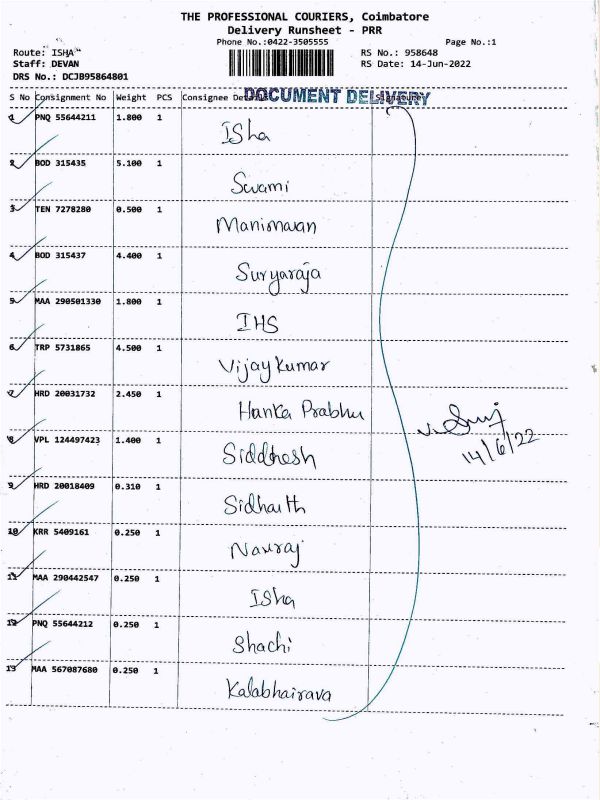 THE PROFESSIONAL COURIERS, Coimbatore
Delivery Runsheet - PRR
Phone No.:0422-3505555 Page No.:1
Route: ISHA RS No.: 958648
Staff: DEVAN RS Date: 14-Jun-2022
DRS No.: DCJB95864801
S No Consignment No Weight PCS Consignee Details Signature
DOCUMENT DELIVERY
1 PNQ 55644211 1.800 1
Isha
2 BOD 315435 5.100 1
Swami
3 TEN 7278280 0.500 1
Manimaran
4 BOD 315437 4.400 1
Suryaraja
5 MAA 290501330 1.800 1
IHS
6 TRP 5731865 4.500 1
Vijay Kumar
7 HRD 20031732 2.450 1
Hanka Prabhu
8 VPL 124497423 1.400 1
Siddhesh
14/6/22
9 HRD 20018409 0.310 1
Sidharth
10 KRR 5409161 0.250 1
Navraj
11 MAA 290442547 0.250 1
Isha
12 PNQ 55644212 0.250 1
Shachi
13 MAA 567087680 0.250 1
Kalabhairava